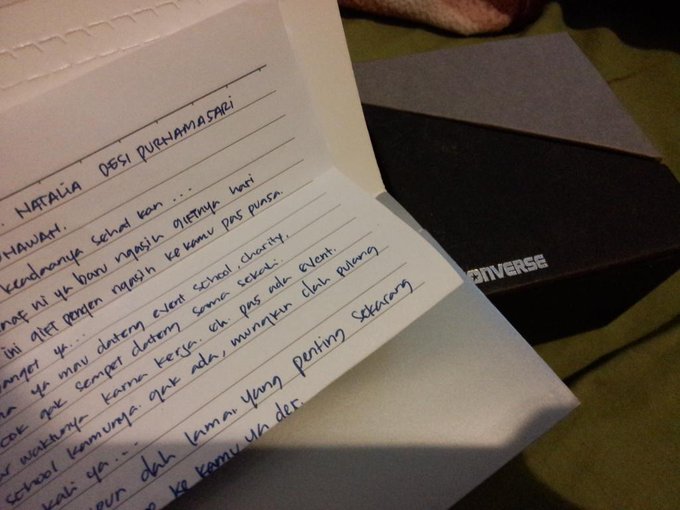 . NATALIA DESI PURNAMASARI
HAWAN.
keadaanya sehat kan ...
ni ya baru ngasih giftnya hari
ini gift pengen ngasih ke kamu pas puasa.
ya ... 
ya mau dateng event school, charity,
cok gak sempet dateng sama sekali.
waktunya karna kerja. eh. pas ada event.
school kamunya gak ada, mungkin dah pulang
kali ya ...
dah lama. yang penting sekarang
ke kamu ya der.
ONVERSE